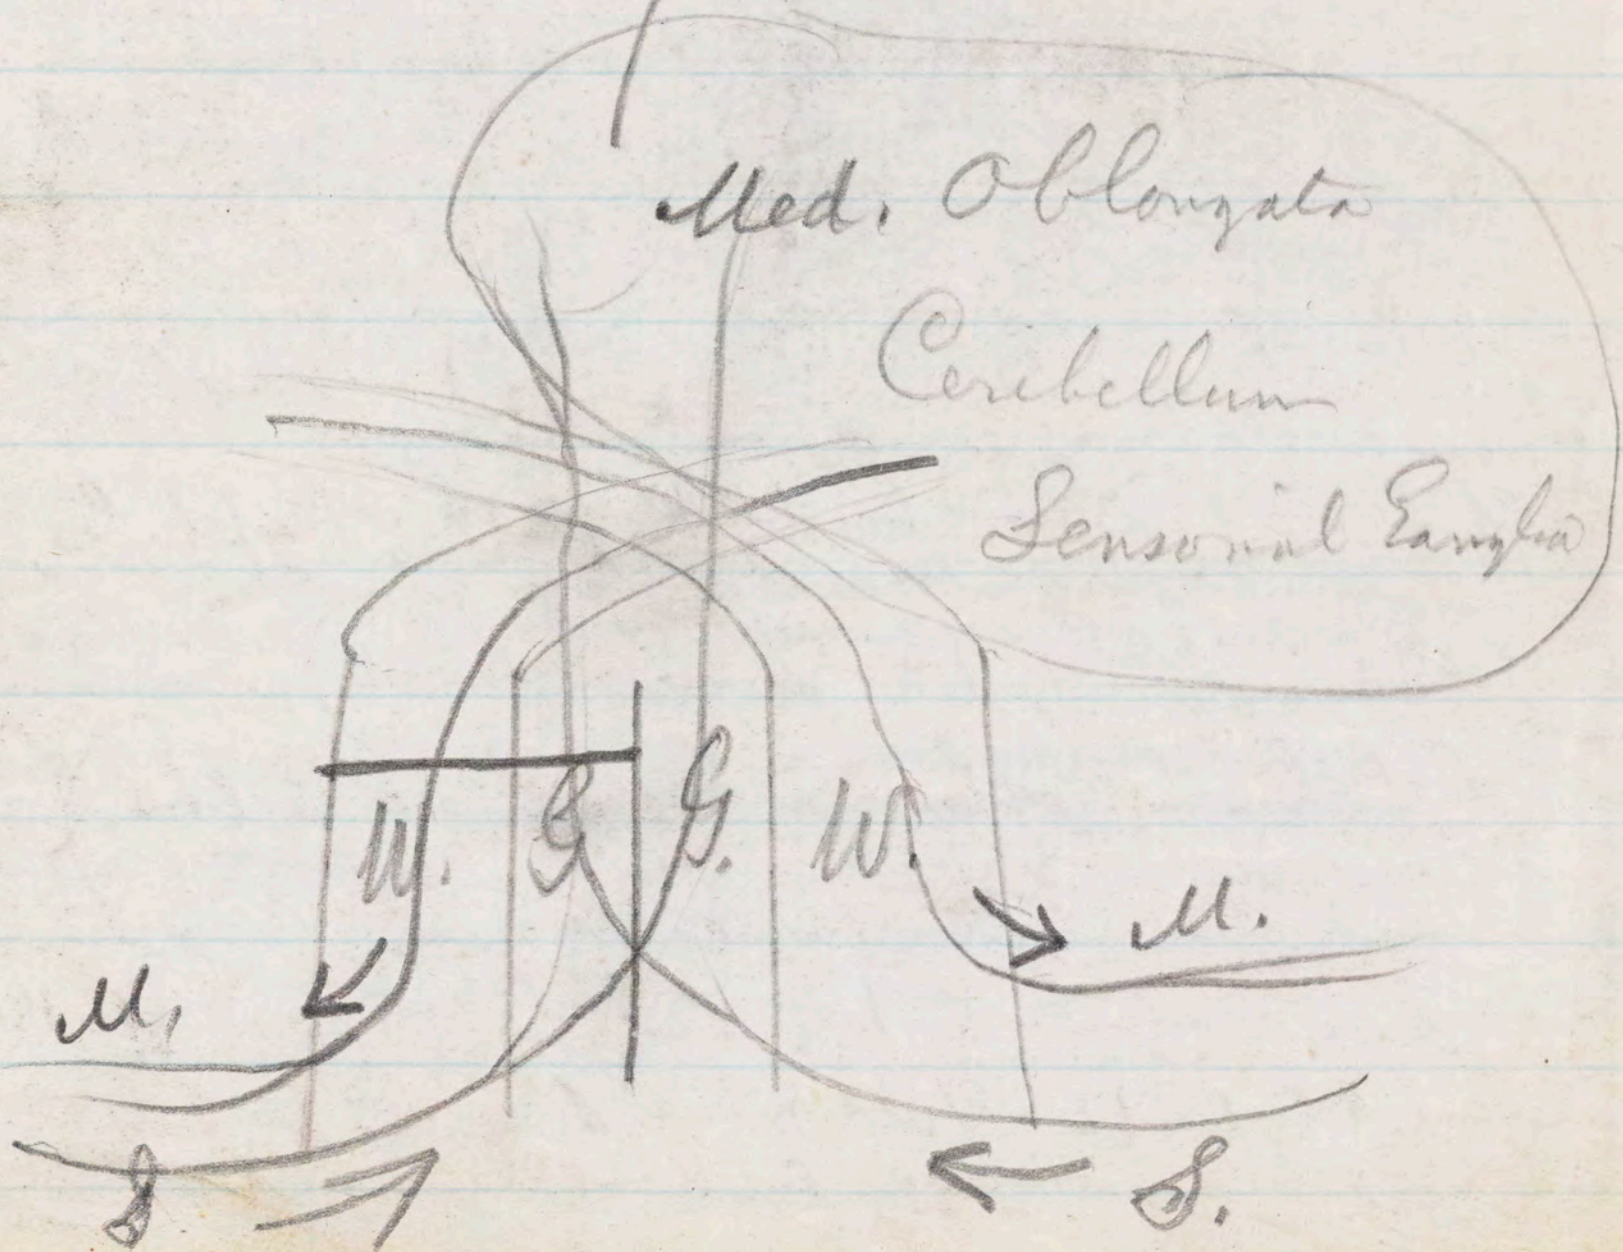 Med. Oblongata
Cerebellum
Sensorial Ganglia
W. G G. W.
M.
M,
S
S.